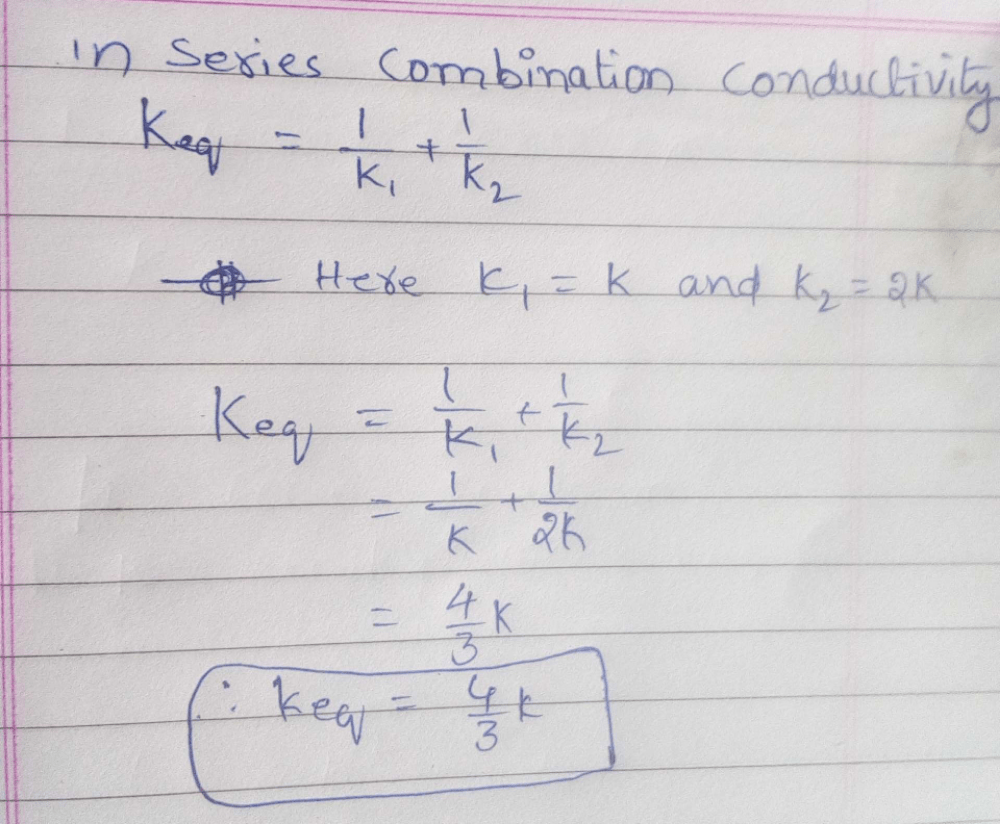 in Series Combination Conductivity
Keq = 1/K₁ + 1/K₂
Here K₁ = K and K₂ = 2K
Keq = 1/K₁ + 1/K₂
= 1/K + 1/2K
= 4/3 K
∴ Keq = 4/3 K